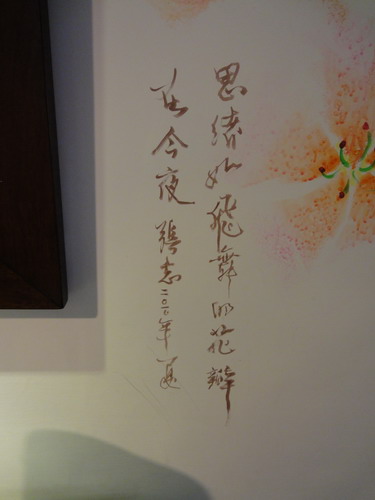 思绪如飛舞的花瓣
在今夜 張志二〇一〇年夏